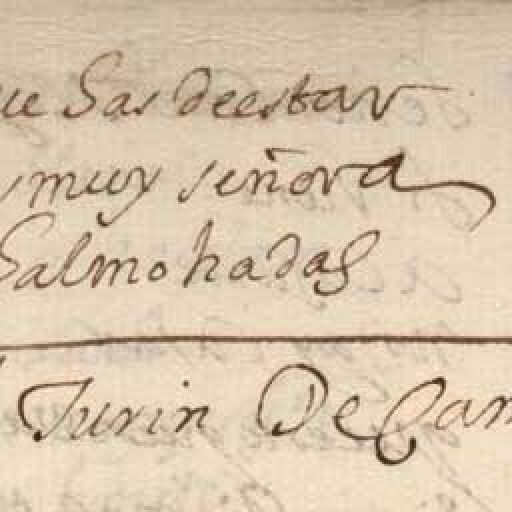 ue has de estar
muy señora
almohadas
Turin De Cam